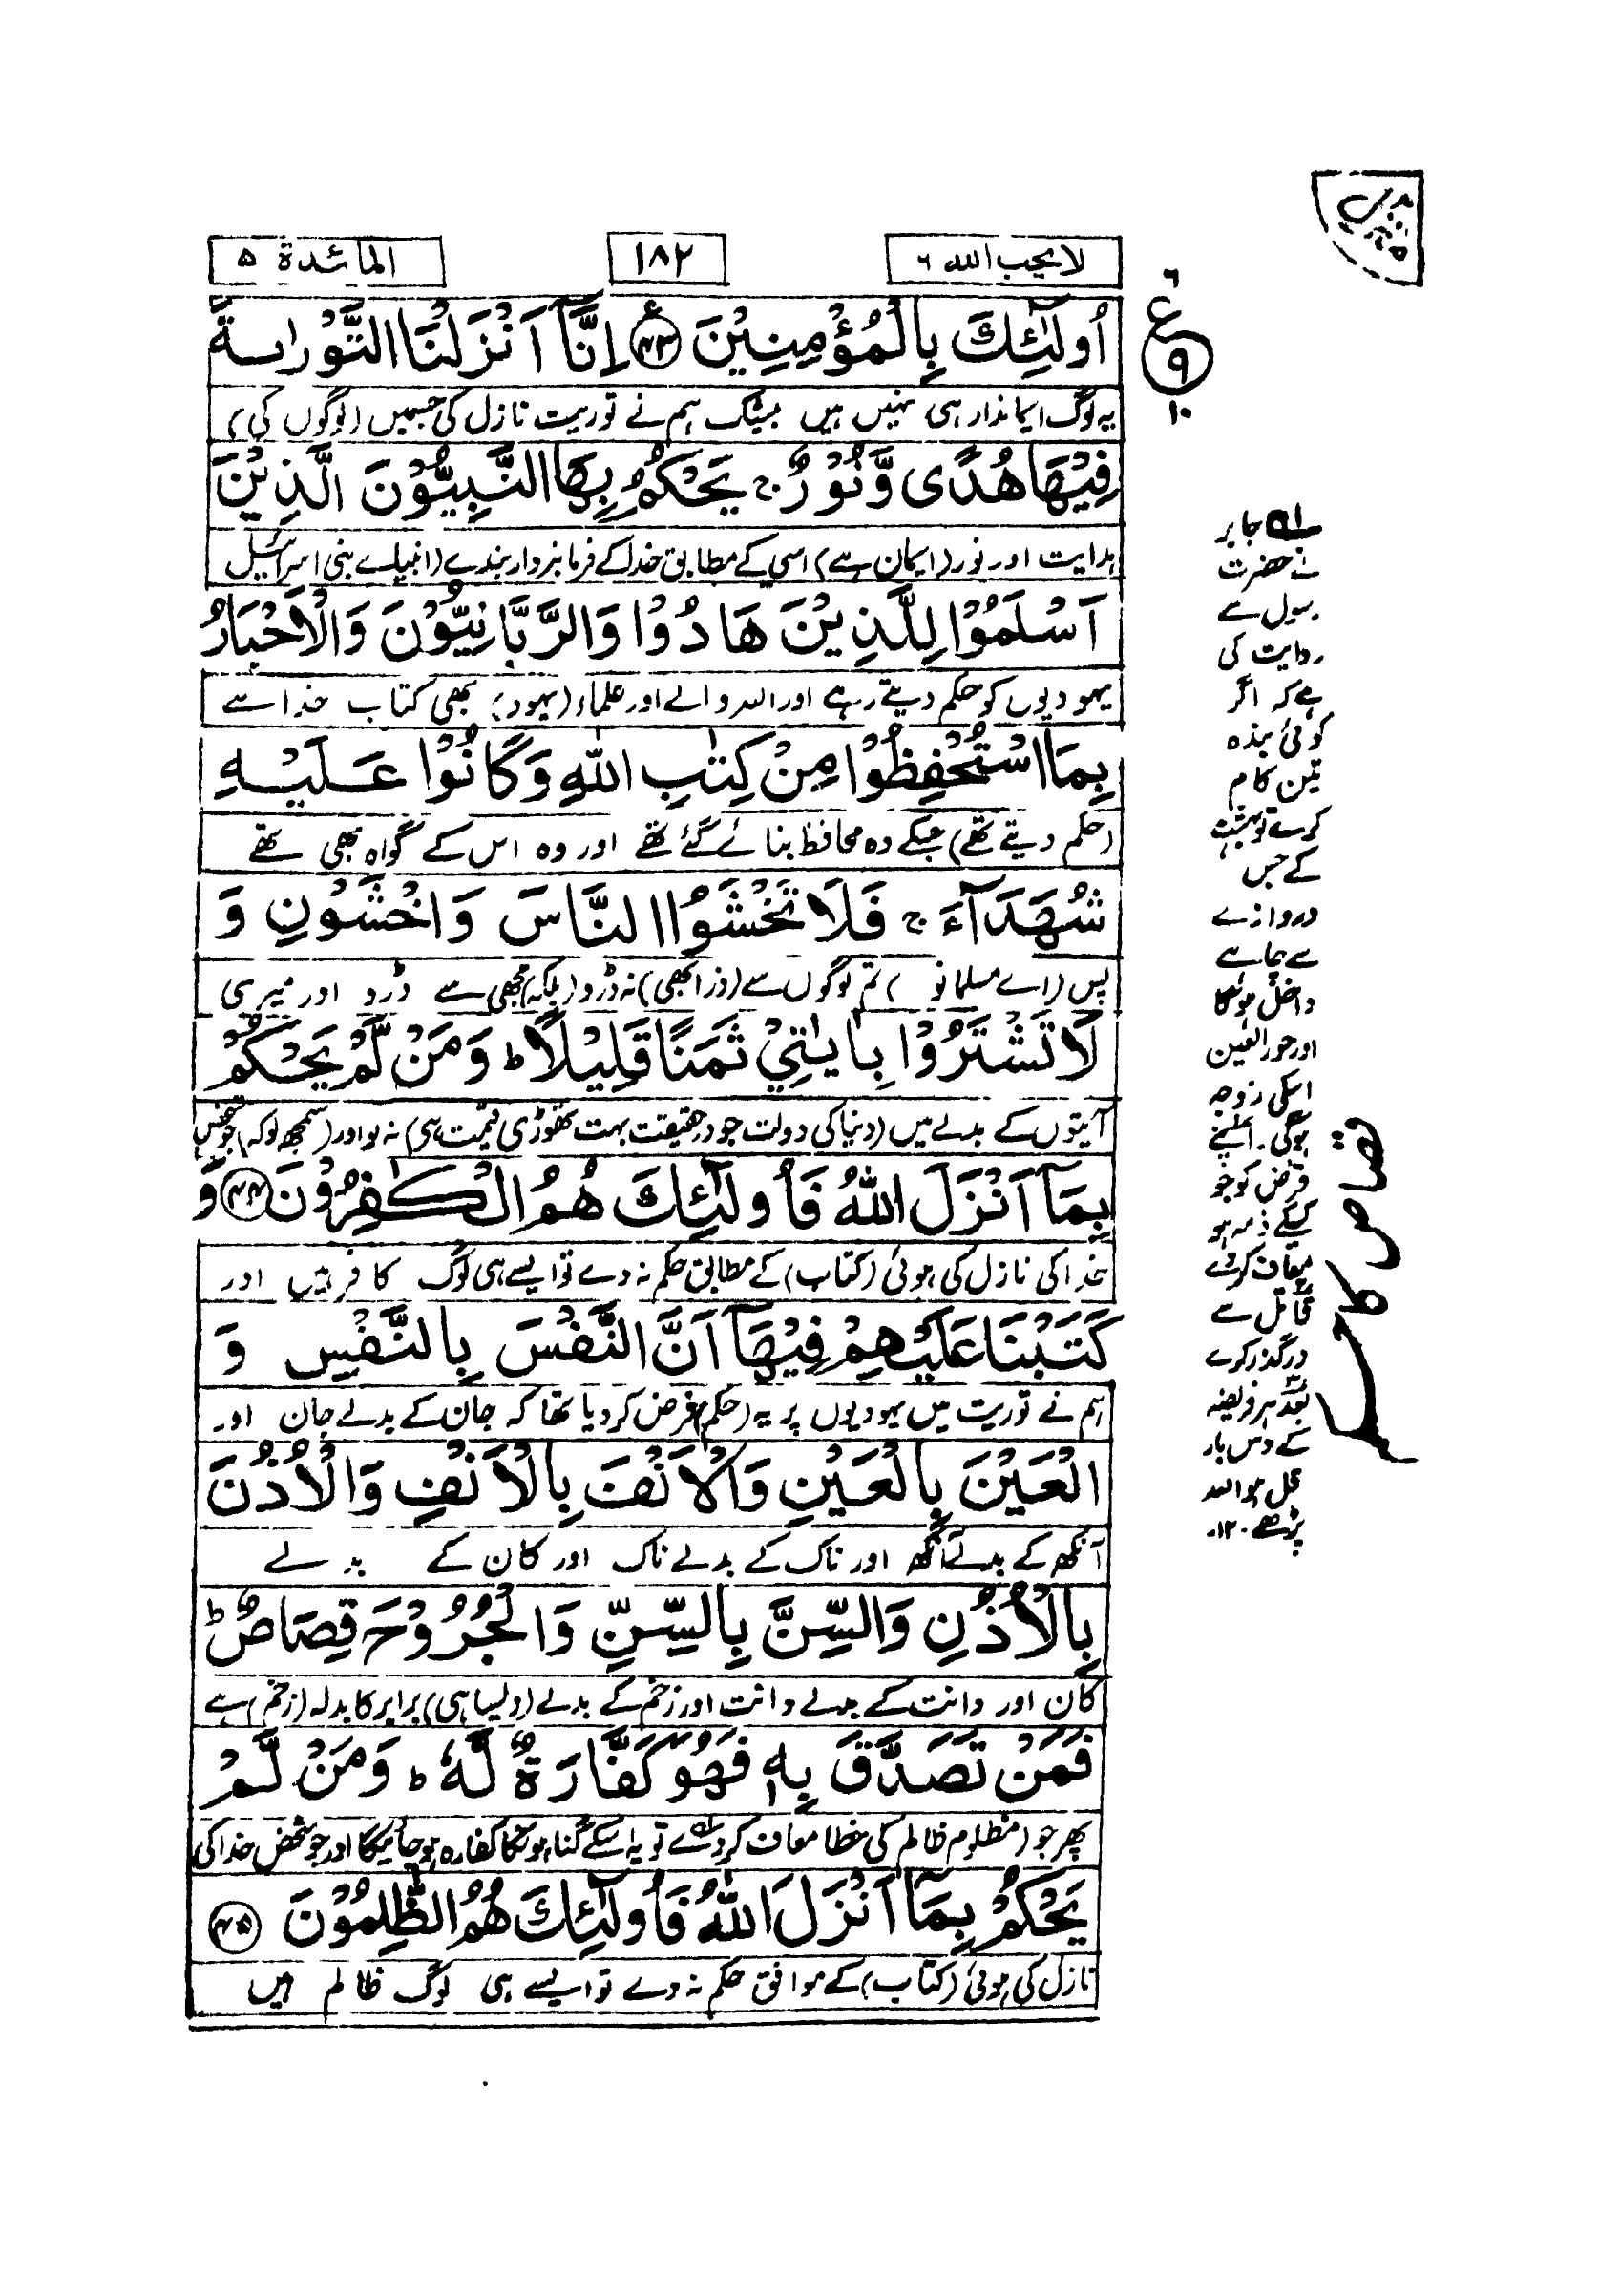 لا یحب الله ۶
۱۸۲
المائدة ۵
اُولٰٓئِكَ بِالْمُؤْمِنِيْنَ ﴿۴۳﴾ اِنَّاۤ اَنْزَلْنَا التَّوْرٰىةَ
یہ لوگ ایماندار ہی نہیں ہیں بیشک ہم نے توریت نازل کی جسمیں (لوگوں کی)
فِيْهَا هُدًى وَّنُوْرٌ ۚ يَحْكُمُ بِهَا النَّبِيُّوْنَ الَّذِيْنَ
ہدایت اور نور (ایمان ہے) اسی کے مطابق خدا کے فرمانبردار بندے (انبیائے بنی اسرائیل
اَسْلَمُوْا لِلَّذِيْنَ هَادُوْا وَالرَّبَّانِيُّوْنَ وَالْاَحْبَارُ
یہودیوں کو حکم دیتے رہے اور اللہ والے اور علماء (یہود) بھی کتاب خدا سے
بِمَا اسْتُحْفِظُوْا مِنْ كِتٰبِ اللّٰهِ وَكَانُوْا عَلَيْهِ
(حکم دیتے تھے) جسکے وہ محافظ بنائے گئے تھے اور وہ اس کے گواہ بھی تھے
شُهَدَآءَ ۚ فَلَا تَخْشَوُا النَّاسَ وَاخْشَوْنِ وَ
پس (اے مسلمانو) تم لوگوں سے (ذرا بھی) نہ ڈرو (بلکہ) مجھی سے ڈرو اور میری
لَا تَشْتَرُوْا بِاٰيٰتِيْ ثَمَنًا قَلِيْلًا ؕ وَمَنْ لَّمْ يَحْكُمْ
آیتوں کے بدلے میں (دنیا کی دولت جو درحقیقت بہت تھوڑی قیمت ہی) نہ لو اور (سمجھ لو کہ) جو شخص
بِمَاۤ اَنْزَلَ اللّٰهُ فَاُولٰٓئِكَ هُمُ الْكٰفِرُوْنَ ﴿۴۴﴾ وَ
خدا کی نازل کی ہوئی (کتاب) کے مطابق حکم نہ دے تو ایسے ہی لوگ کافر ہیں اور
كَتَبْنَا عَلَيْهِمْ فِيْهَاۤ اَنَّ النَّفْسَ بِالنَّفْسِ وَ
ہم نے توریت میں یہودیوں پر یہ (حکم) فرض کر دیا تھا کہ جان کے بدلے جان اور
الْعَيْنَ بِالْعَيْنِ وَالْاَنْفَ بِالْاَنْفِ وَالْاُذُنَ
آنکھ کے بدلے آنکھ اور ناک کے بدلے ناک اور کان کے بدلے
بِالْاُذُنِ وَالسِّنَّ بِالسِّنِّ وَالْجُرُوْحَ قِصَاصٌ ؕ
کان اور دانت کے بدلے دانت اور زخم کے بدلے (ویسا ہی) برابر کا بدلہ (زخم) ہے
فَمَنْ تَصَدَّقَ بِهٖ فَهُوَ كَفَّارَةٌ لَّهٗ ؕ وَمَنْ لَّمْ
پھر جو (مظلوم ظالم کی خطا معاف کر دے تو یہ اسکے گناہوں کا کفارہ ہو جائیگا اور جو شخص خدا کی
يَحْكُمْ بِمَاۤ اَنْزَلَ اللّٰهُ فَاُولٰٓئِكَ هُمُ الظّٰلِمُوْنَ ﴿۴۵﴾
نازل کی ہوئی (کتاب) کے موافق حکم نہ دے تو ایسے ہی لوگ ظالم ہیں
۶
ع
۹
۱۰
لہ جابر
نے حضرت
رسول سے
روایت کی
ہے کہ اگر
کوئی بندہ
تین کام
کرے تو بہشت
کے جس
دروازے
سے چاہے
داخل ہوگا
اور حور العین
اسکی زوجہ
ہوگی۔ اپنے
قرض کو جو
کسیکے ذمہ ہو
معاف کردے
قاتل سے
درگذر کرے
بعد ہر فریضہ
کے دس بار
قل ہو اللہ
پڑھے ۱۲۰
قصاص کا حکم